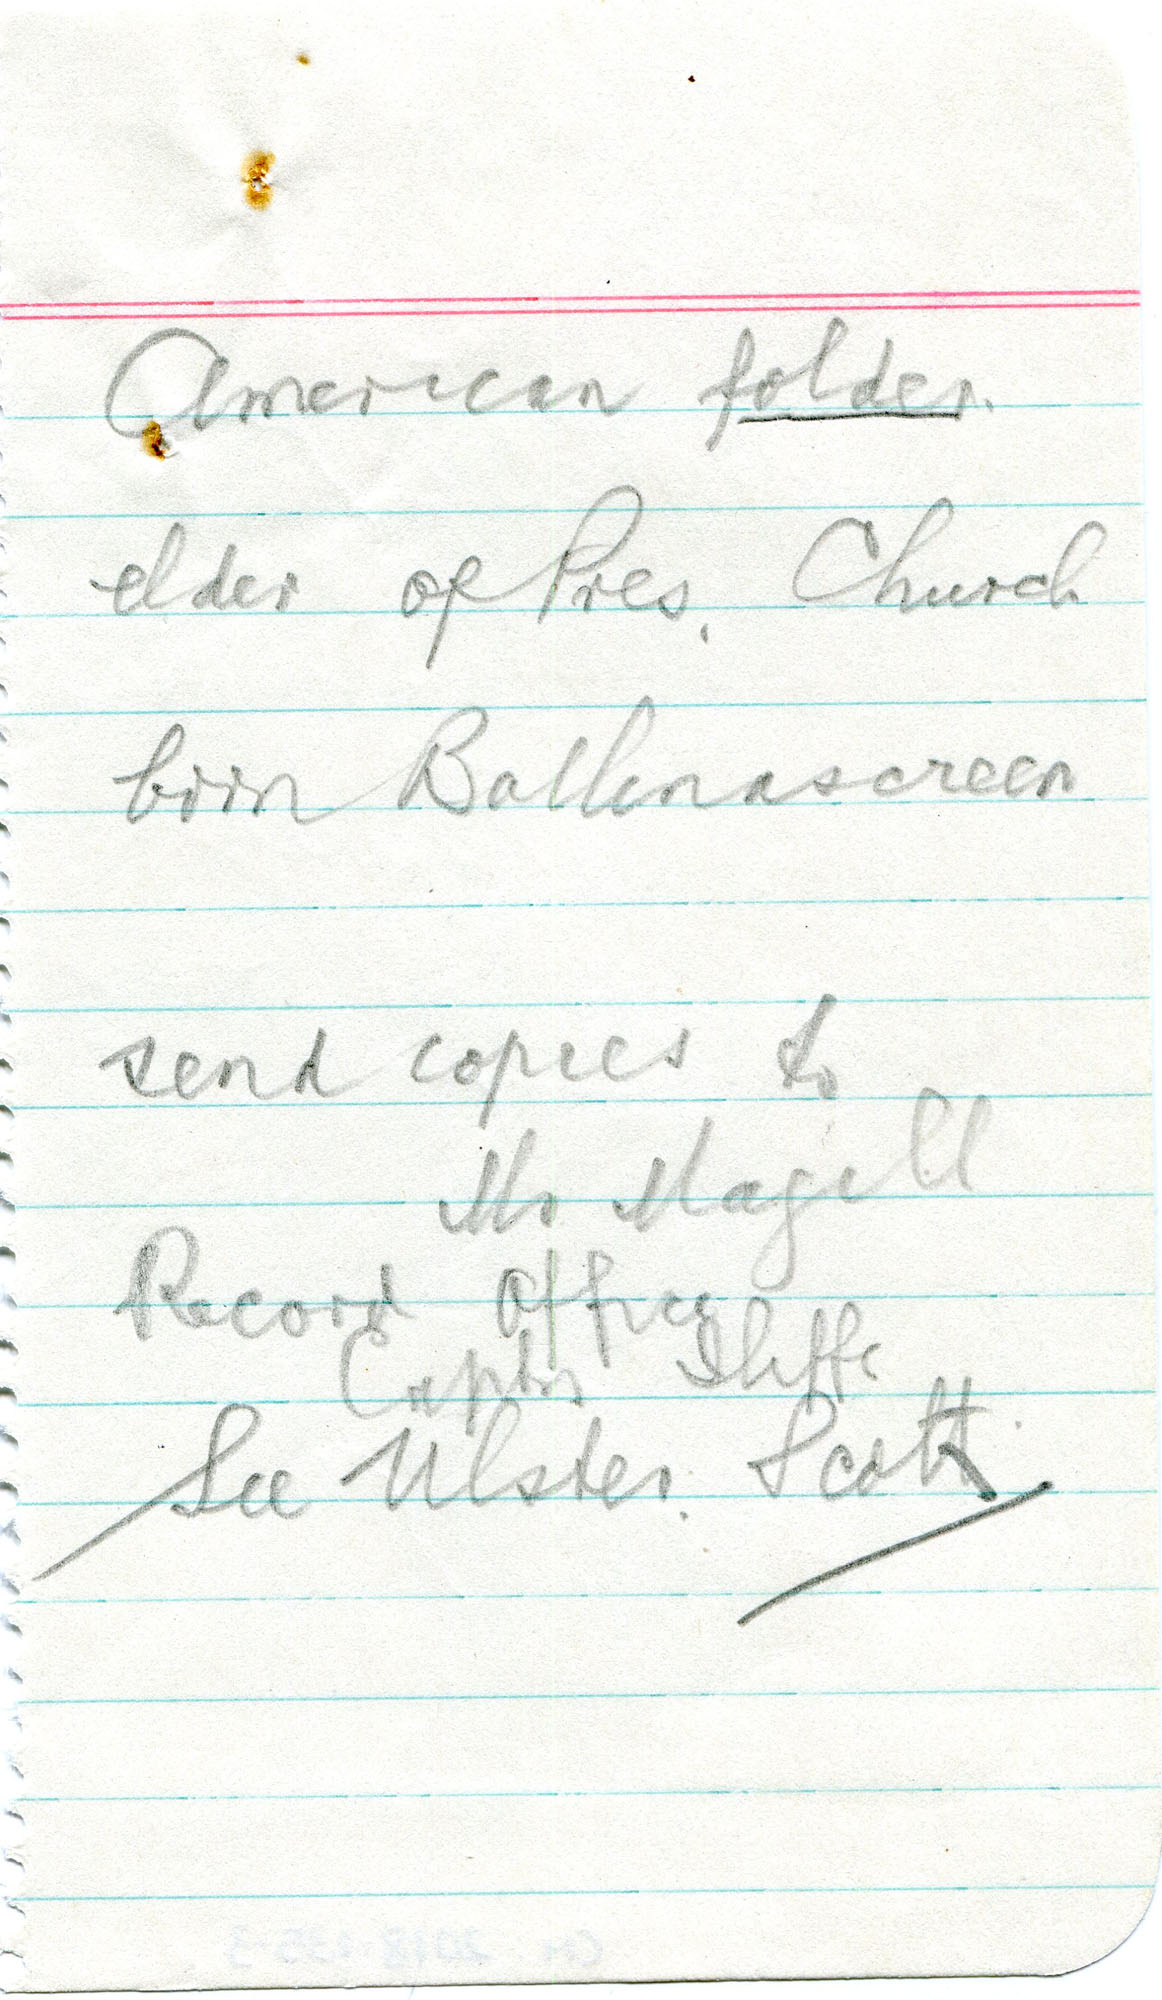 American folder.
elder of Pres. Church
born Ballinascreen
send copies to
Mr Magill
Record Office
Captn Iliffe
See Ulster. Scott